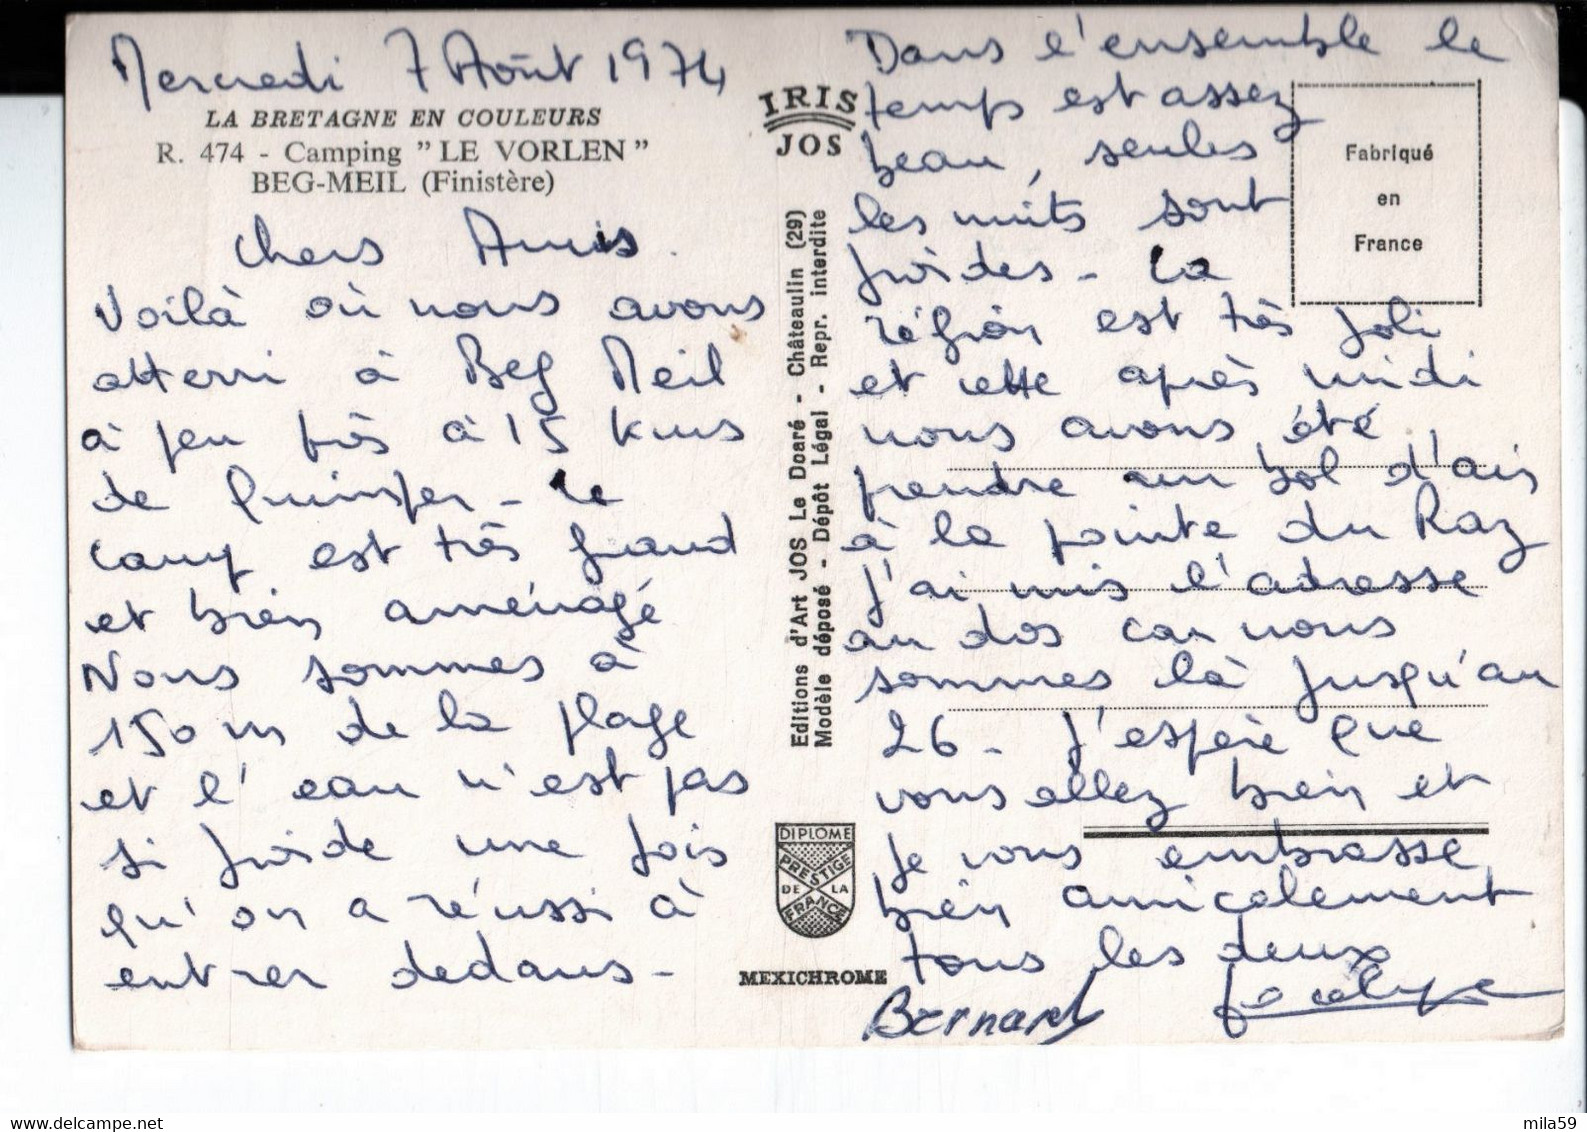 Mercredi 7 Août 1974
LA BRETAGNE EN COULEURS
R. 474 - Camping "LE VORLEN"
BEG-MEIL (Finistère)
Chers Amis.
Voilà où nous avons
atterri à Beg Meil
à peu près à 15 kms
de Quimper - Le
camp est très grand
et bien aménagé
Nous sommes à
150 m de la plage
et l'eau n'est pas
si froide une fois
qu'on a réussi à
entrer dedans -
IRIS
JOS
Editions d'Art JOS Le Doaré - Châteaulin (29)
Modèle déposé - Dépôt Légal - Repr. interdite
DIPLOME
PRESTIGE
DE LA
FRANCE
MEXICHROME
Dans l'ensemble le
temps est assez
beau, seules
les nuits sont
froides - La
région est très joli
et cette après midi
nous avons été
prendre un bol d'air
à la pointe du Raz
J'ai mis l'adresse
au dos car nous
sommes là jusqu'au
26 - J'espère que
vous allez bien et
je vous embrasse
bien amicalement
tous les deux
Bernard Jocelyne
Fabriqué
en
France
delcampe.net
mila59